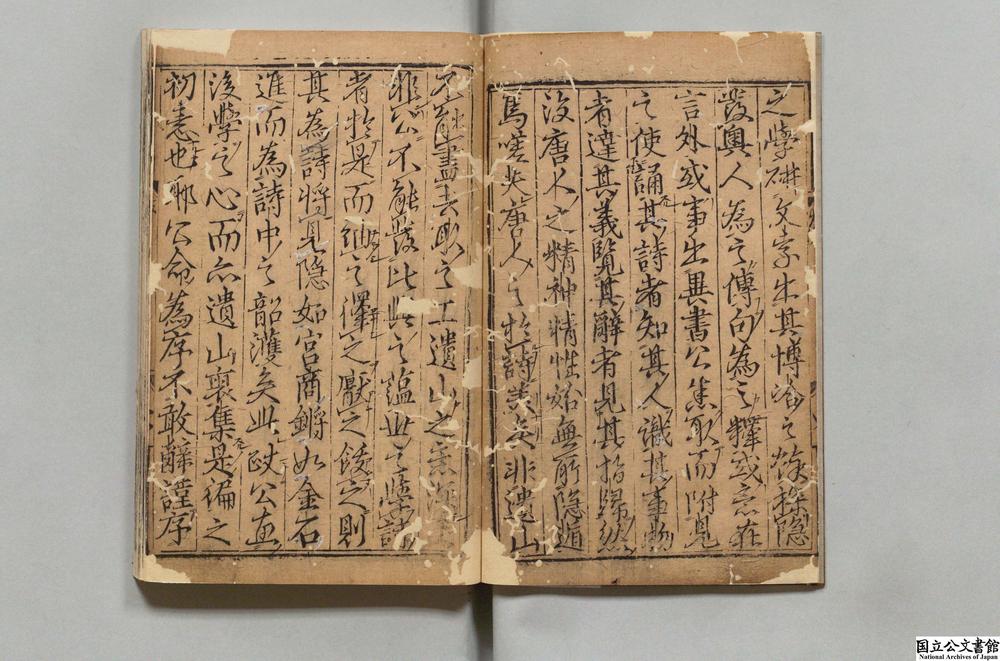 之學研文字出其博洽之餘探隱
發奧人為之傳句為之釋或意在
言外或事出異書公悉取而附見
之使誦其詩者知其人識其事物
者達其義覽其辭者見其指歸然
後唐人之精神情性始無所隱遁
焉嗟夫唐人之於詩美矣非遺山
不能盡去取之工遺山之意深
非公不能發比興之蘊世之學詩
者於是而紬之繹之厭之飫之則
其為詩將見隱如宮商鏘如金石
進而為詩中之韶濩矣此政公惠
後學之心而亦遺山裒集是編之
初意也耶公命為序不敢辭謹序
国立公文書館
National Archives of Japan